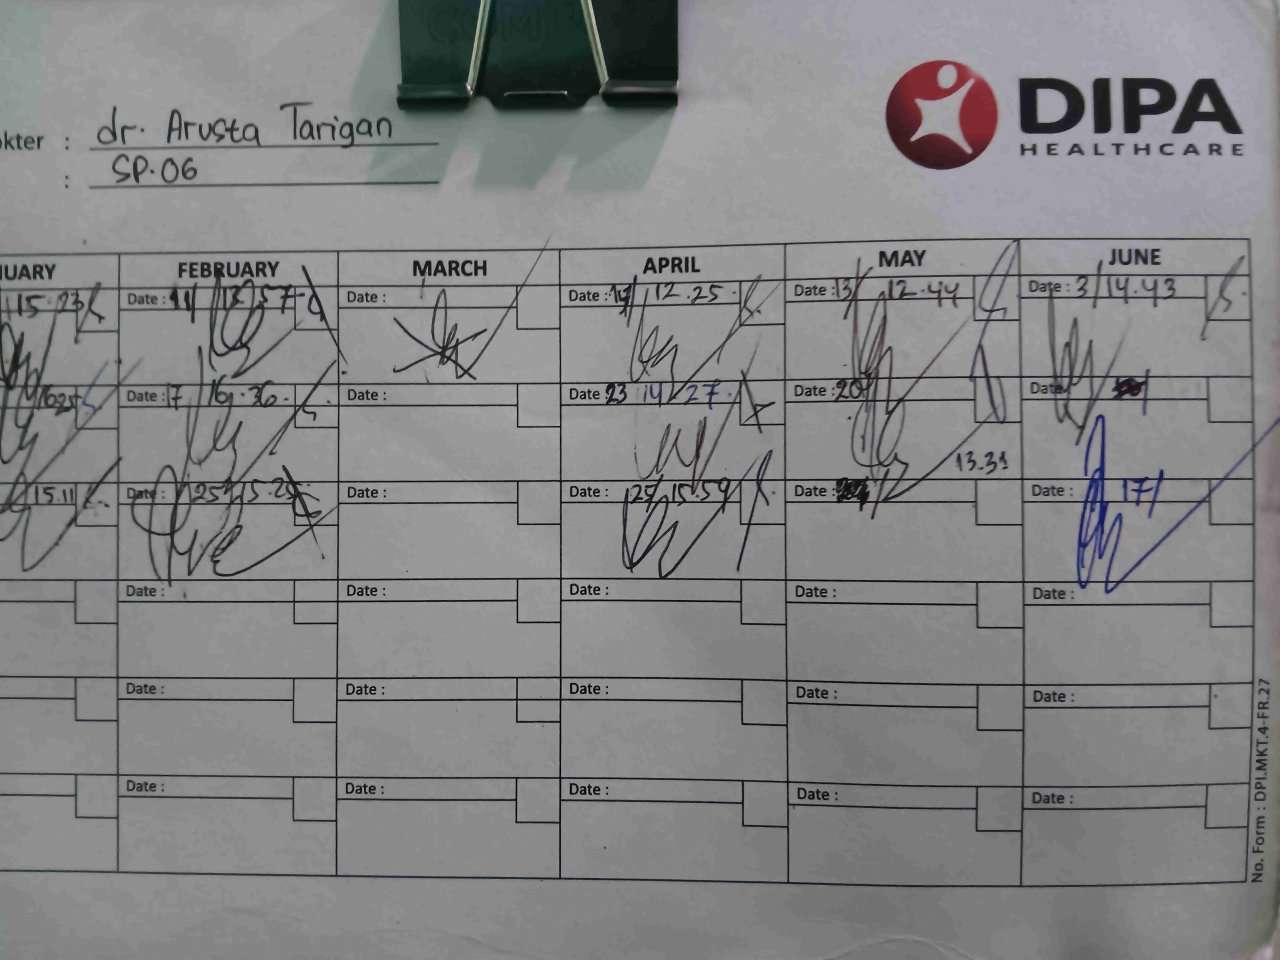 DIPA
HEALTHCARE
okter : dr. Arusta Tarigan
: SP.06
UARY FEBRUARY MARCH APRIL MAY JUNE
15.23 Date : 11/ 13.57 Date : Date : 12.25 Date : 13/ 12.44 Date : 3/14.43
Date : 17 16.36 Date : Date : 23 14 27 Date : 20 Date
13.31
15.11 Date : 25 Date : Date : 15.59 Date : Date : 17/
Date : Date : Date : Date : Date :
Date : Date : Date : Date : Date :
Date : Date : Date : Date : Date :
No. Form : DPI.MKT.4-FR.27